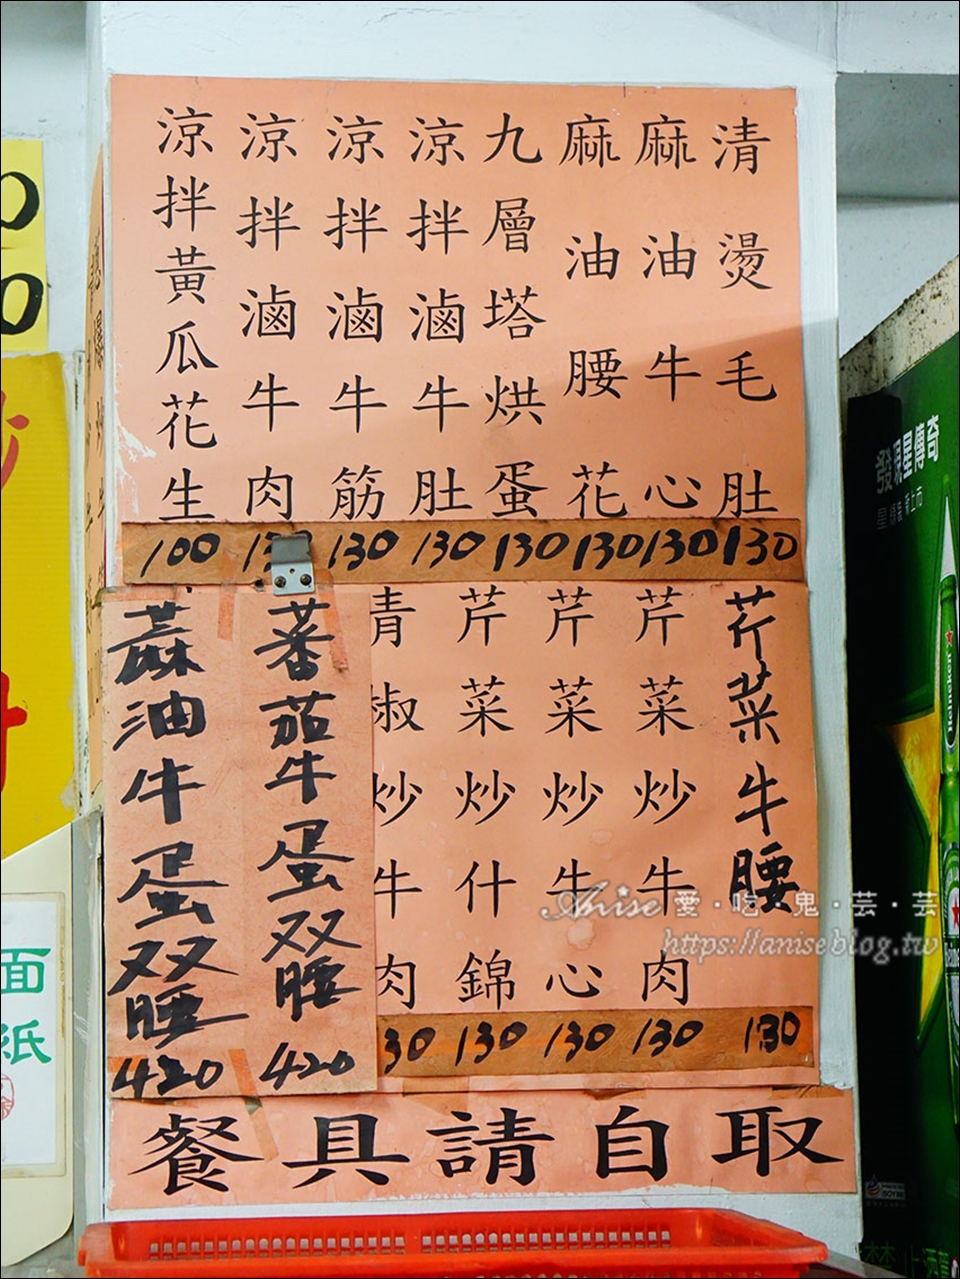 清燙毛肚 130
麻油牛心 130
麻油腰花 130
九層塔烘蛋 130
涼拌滷牛肚 130
涼拌滷牛筋 130
涼拌滷牛肉 130
涼拌黃瓜花生 100
芹菜牛腰 130
芹菜炒牛肉 130
芹菜炒牛心 130
芹菜炒什錦 130
青椒炒牛肉 30
蕃茄牛蛋双腰 420
蔴油牛蛋双腰 420
餐具請自取
Anise 愛·吃·鬼·芸·芸
https://aniseblog.tw
發現星傳奇
Heineken
面
紙